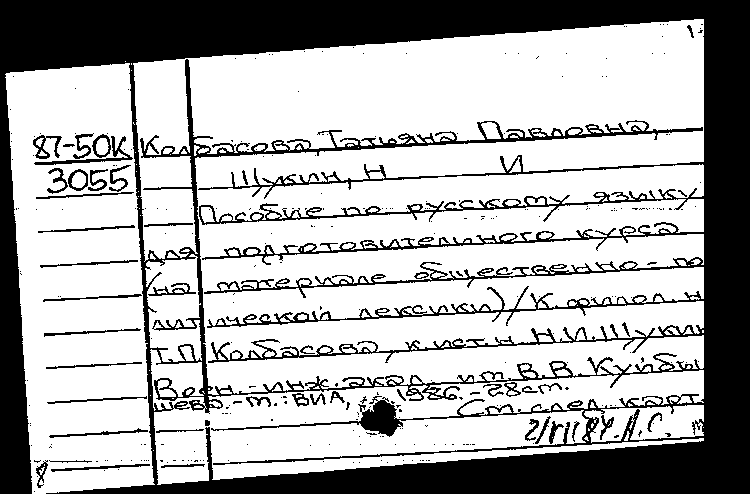 1
87-50К Колбасова, Татьяна Павловна,
3055 Щукин, Н И
Пособие по русскому языку
для подготовительного курса
(на материале общественно-по
литической лексики)/К.филол.н
Т.П. Колбасова, к.ист.н. Н.И. Щукин
Воен.-инж. акад. им В.В. Куйбы
шева.-М.: ВИА, 1986.-28см.
См. след. карт.
2/VII 87. А.С.
8